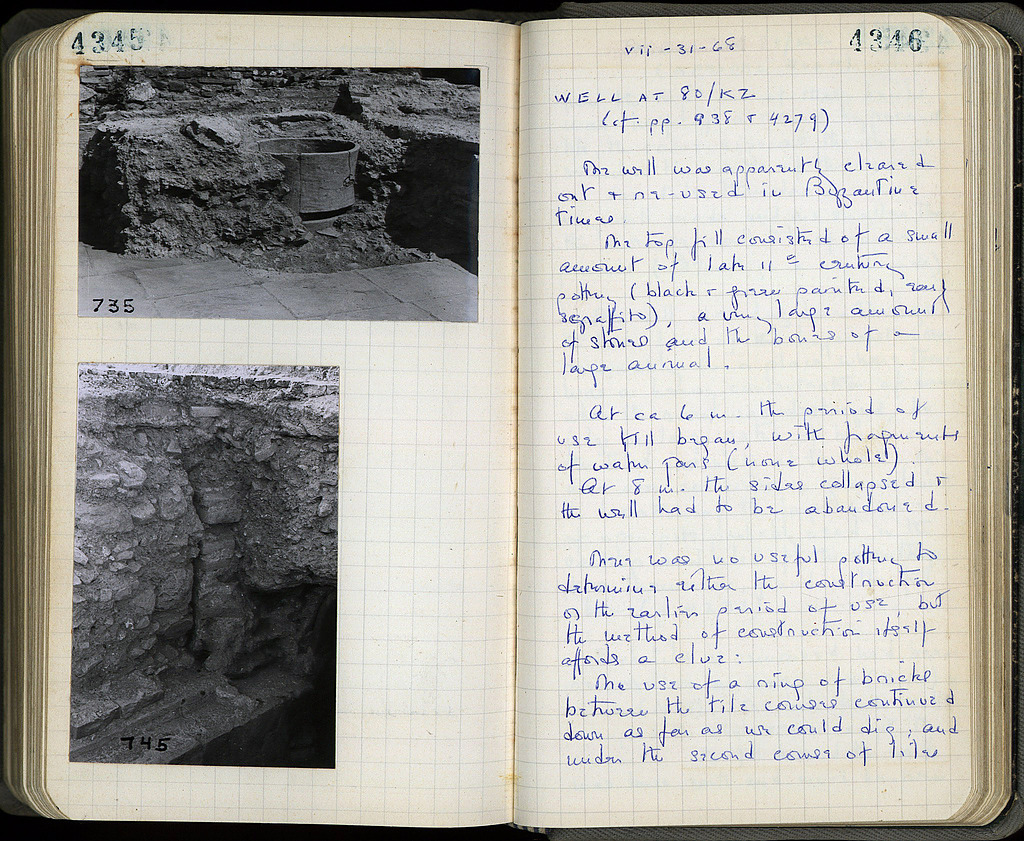 4345
735
745
4346
vii-31-68
WELL AT 80/KZ
(cf. pp. 938 + 4279)
The well was apparently cleared
out + re-used in Byzantine
times.
The top fill consisted of a small
amount of late 11th century
pottery (black + green painted, early
sgraffito), a very large amount
of stones and the bones of a
large animal.
At ca 6 m. the period of
use fill began, with fragments
of water jars (none whole).
At 8 m. the sides collapsed +
the well had to be abandoned.
There was no useful pottery to
determine either the construction
or the earlier period of use, but
the method of construction itself
affords a clue:
The use of a ring of bricks
between the tile courses continued
down as far as we could dig, and
under the second course of tiles